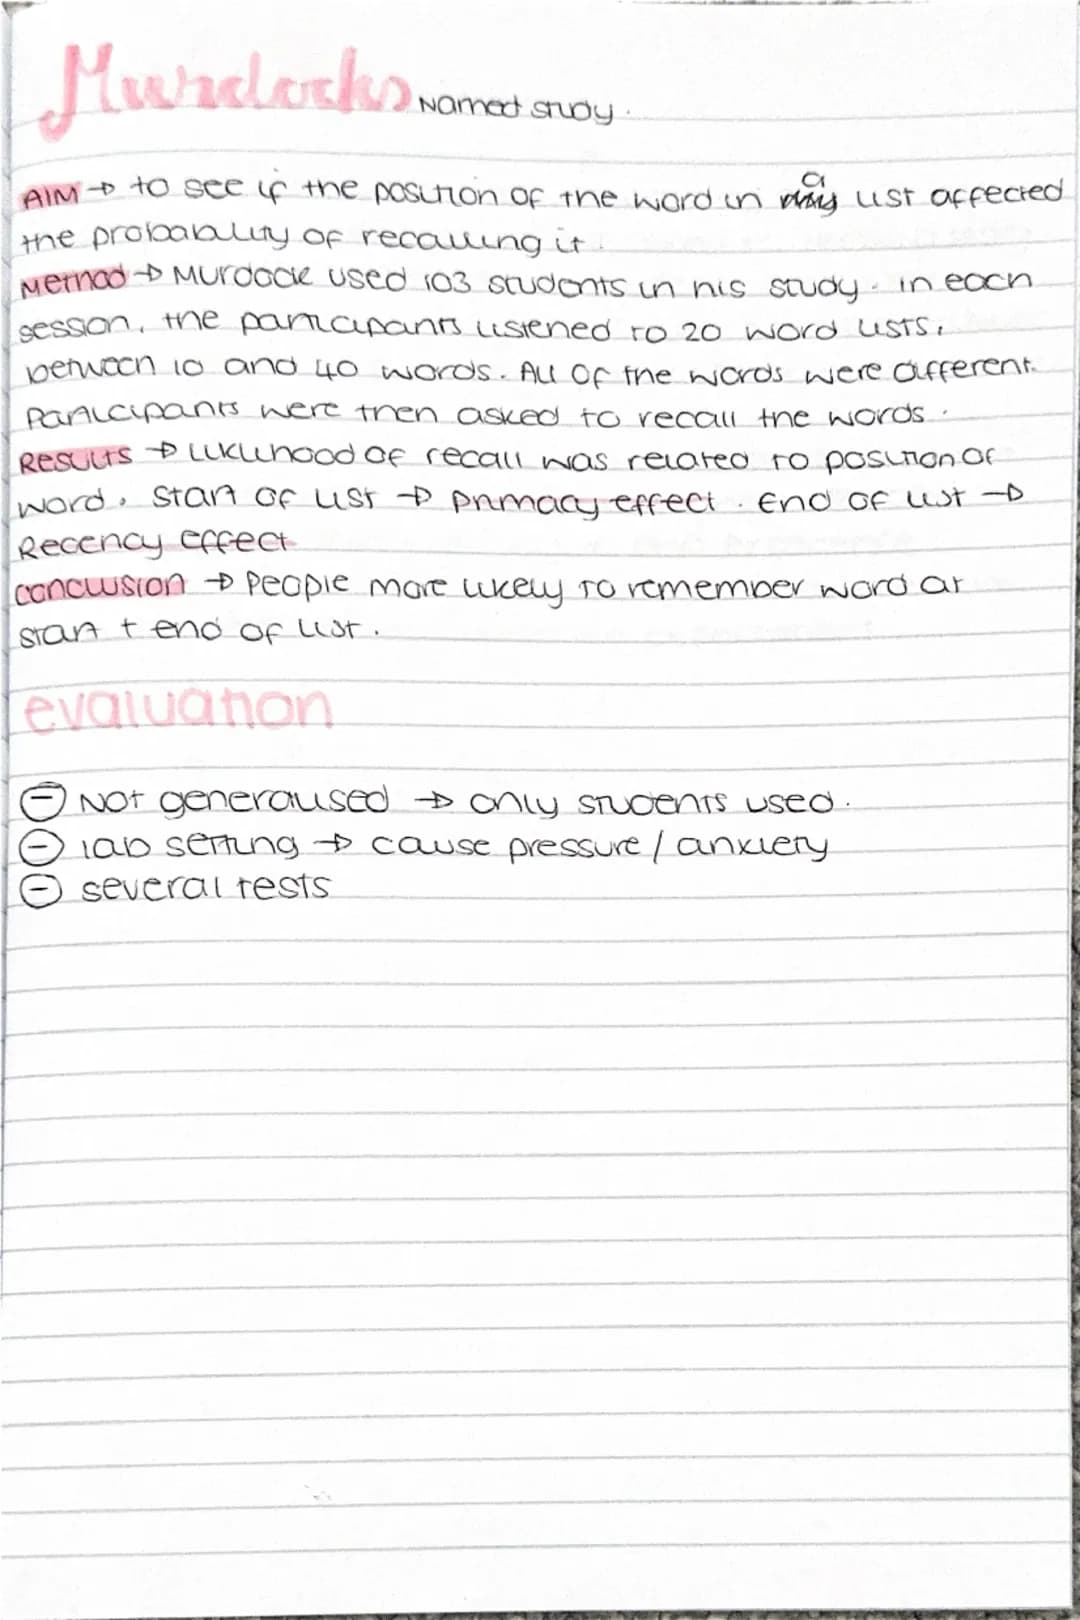 Murdocks Named study.
AIM → to see if the position of the word in a list affected
the probability of recalling it.
Method → Murdock used 103 students in his study. in each
session, the participants listened to 20 word lists,
between 10 and 40 words. All of the words were different.
Participants were then asked to recall the words.
Results → Liklihood of recall was related to position of
word. Start of list → primacy effect. End of list →
Recency effect
conclusion → People more likely to remember word at
start + end of list.
evaluation
⊖ Not generalised → only students used.
⊖ lab setting → cause pressure / anxiety
⊖ several tests